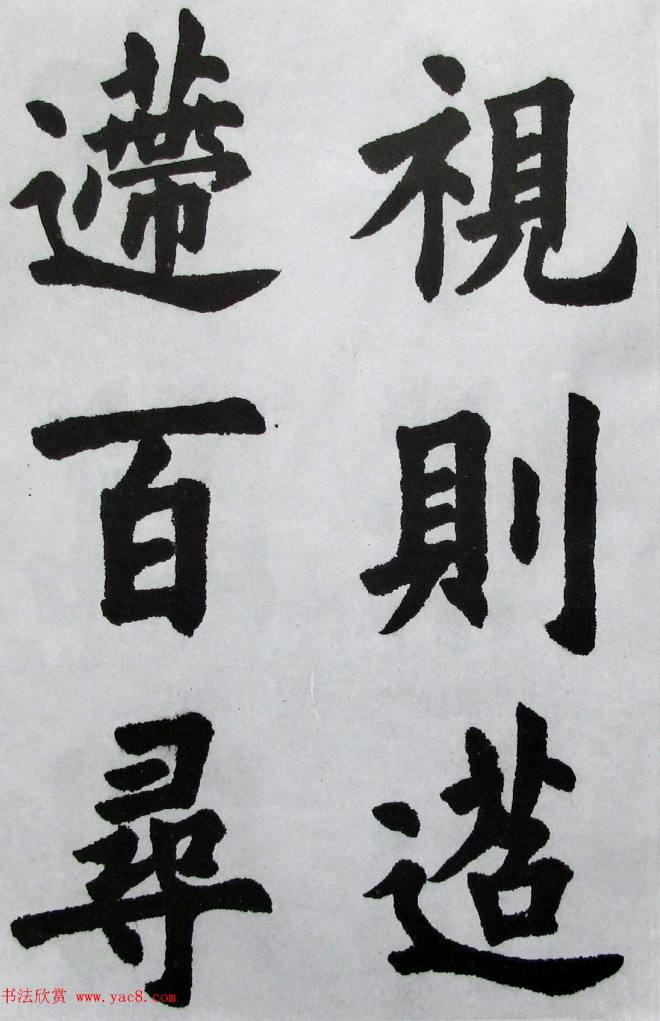 視則迢遰百尋
书法欣赏 www.yac8.com